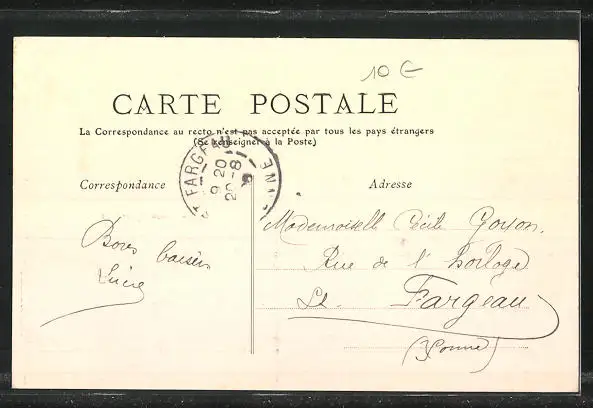 10 €
CARTE POSTALE
La Correspondance au recto n'est pas acceptée par tous les pays étrangers
(Se renseigner à la Poste)
FARGEAU
9 20
20-8
YONNE
Correspondance
Adresse
Bons baisers
Lucie
Mademoiselle Cécile Goyon.
Rue de l'horloge
St. Fargeau
(Yonne)